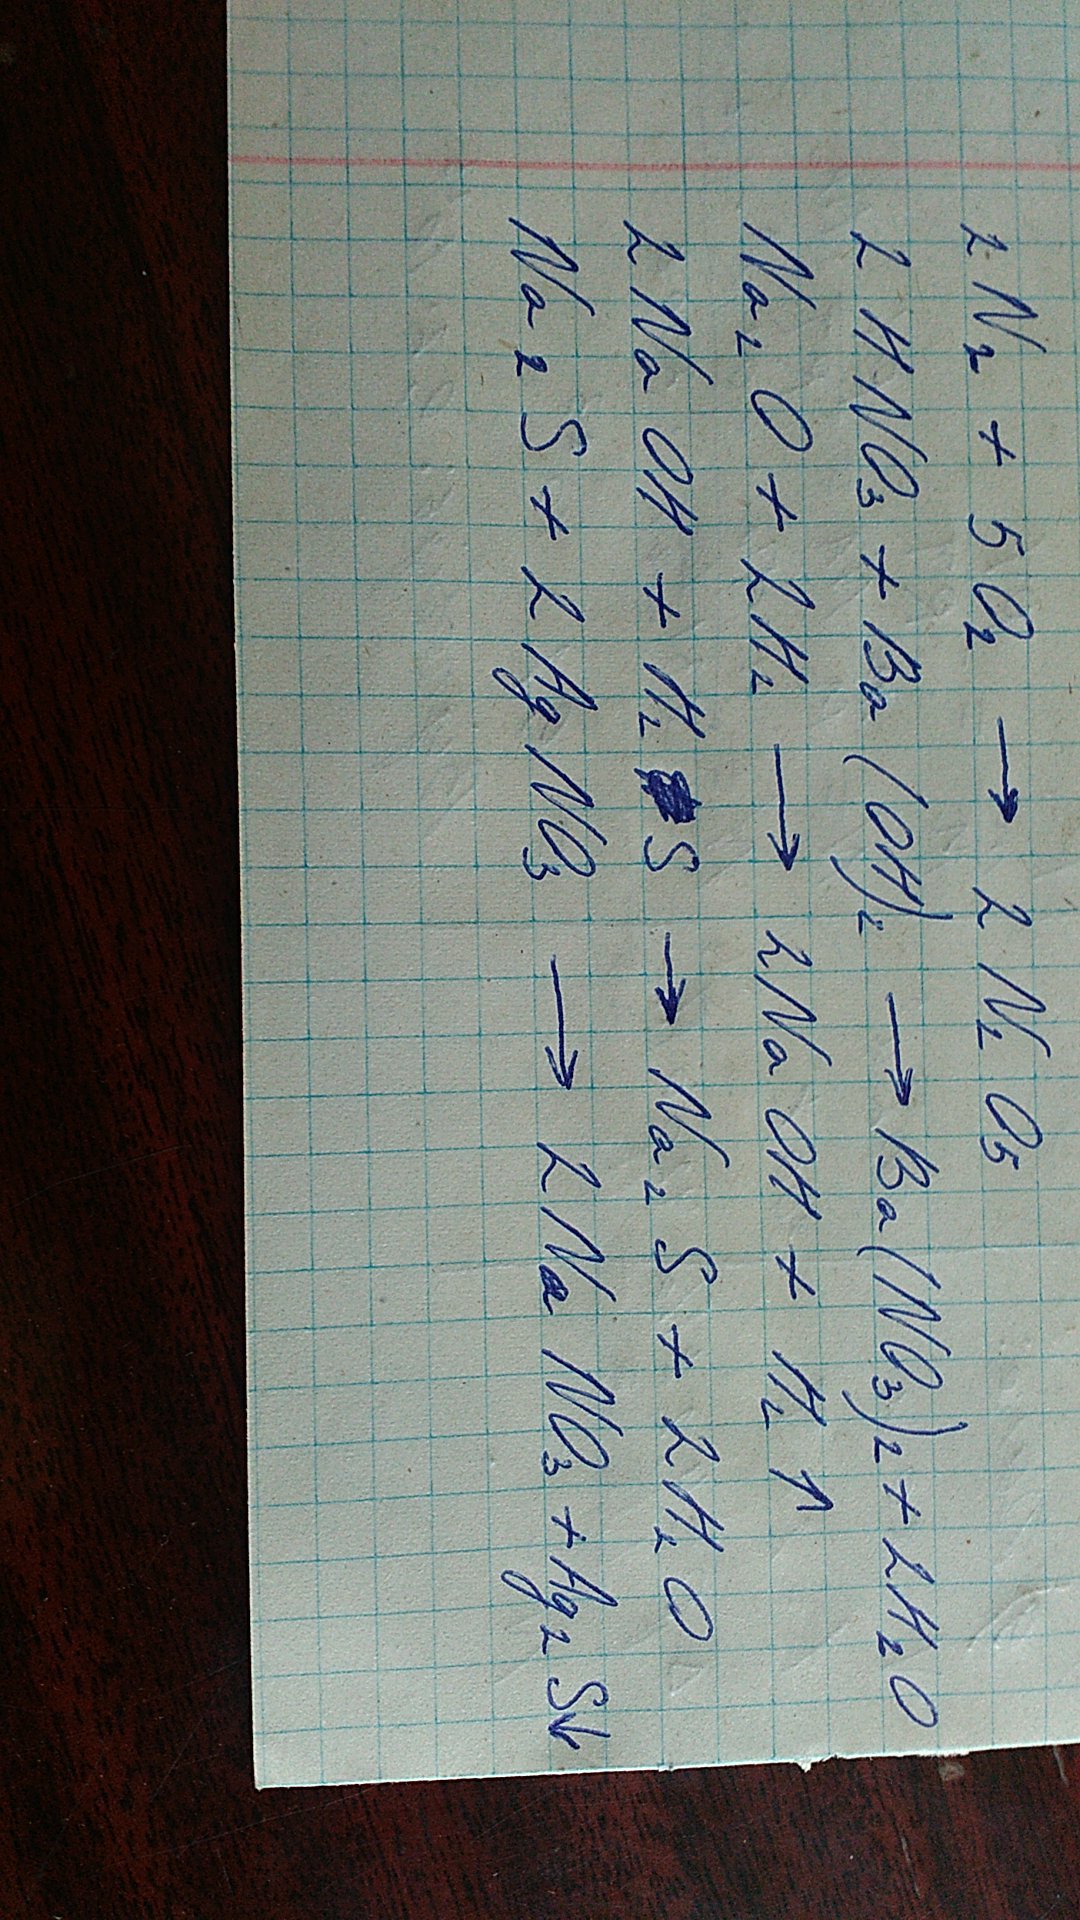 2N₂ + 5O₂ → 2N₂O₅
2HNO₃ + Ba(OH)₂ → Ba(NO₃)₂ + 2H₂O
Na₂O + 2H₂ → 2NaOH + H₂↑
2NaOH + H₂S → Na₂S + 2H₂O
Na₂S + 2AgNO₃ → 2NaNO₃ + Ag₂S↓